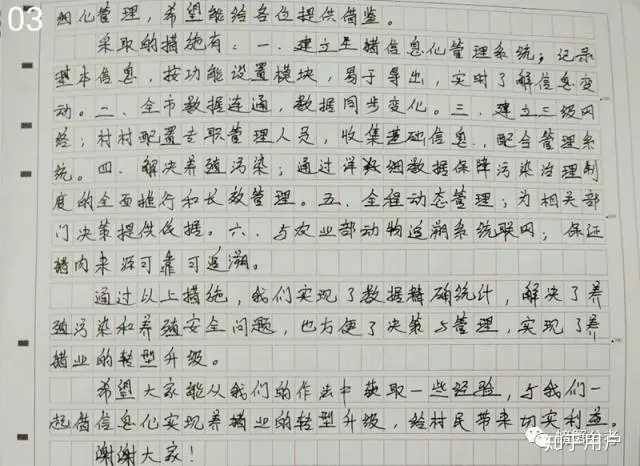 03
细化管理，希望能给各位提供借鉴。
采取的措施有：一、建立生猪信息化管理系统；记录
基本信息，按功能设置模块，易于导出，实时了解信息变
动。二、全市数据连通，数据同步变化。三、建立三级网
络；村村配置专职管理人员，收集基础信息，配合管理系
统。四、解决养殖污染；通过详细数据保障污染治理制
度的全面推行和长效管理。五、全程动态管理；为相关部
门决策提供依据。六、与农业部动物追溯系统联网；保证
猪肉来源可靠可追溯。
通过以上措施，我们实现了数据精确统计，解决了养
殖污染和养殖安全问题，也方便了决策与管理，实现了养
猪业的转型升级。
希望大家能从我们的作法中获取一些经验，与我们一
起借信息化实现养猪业的转型升级，给村民带来切实利益。
谢谢大家！
知乎用户